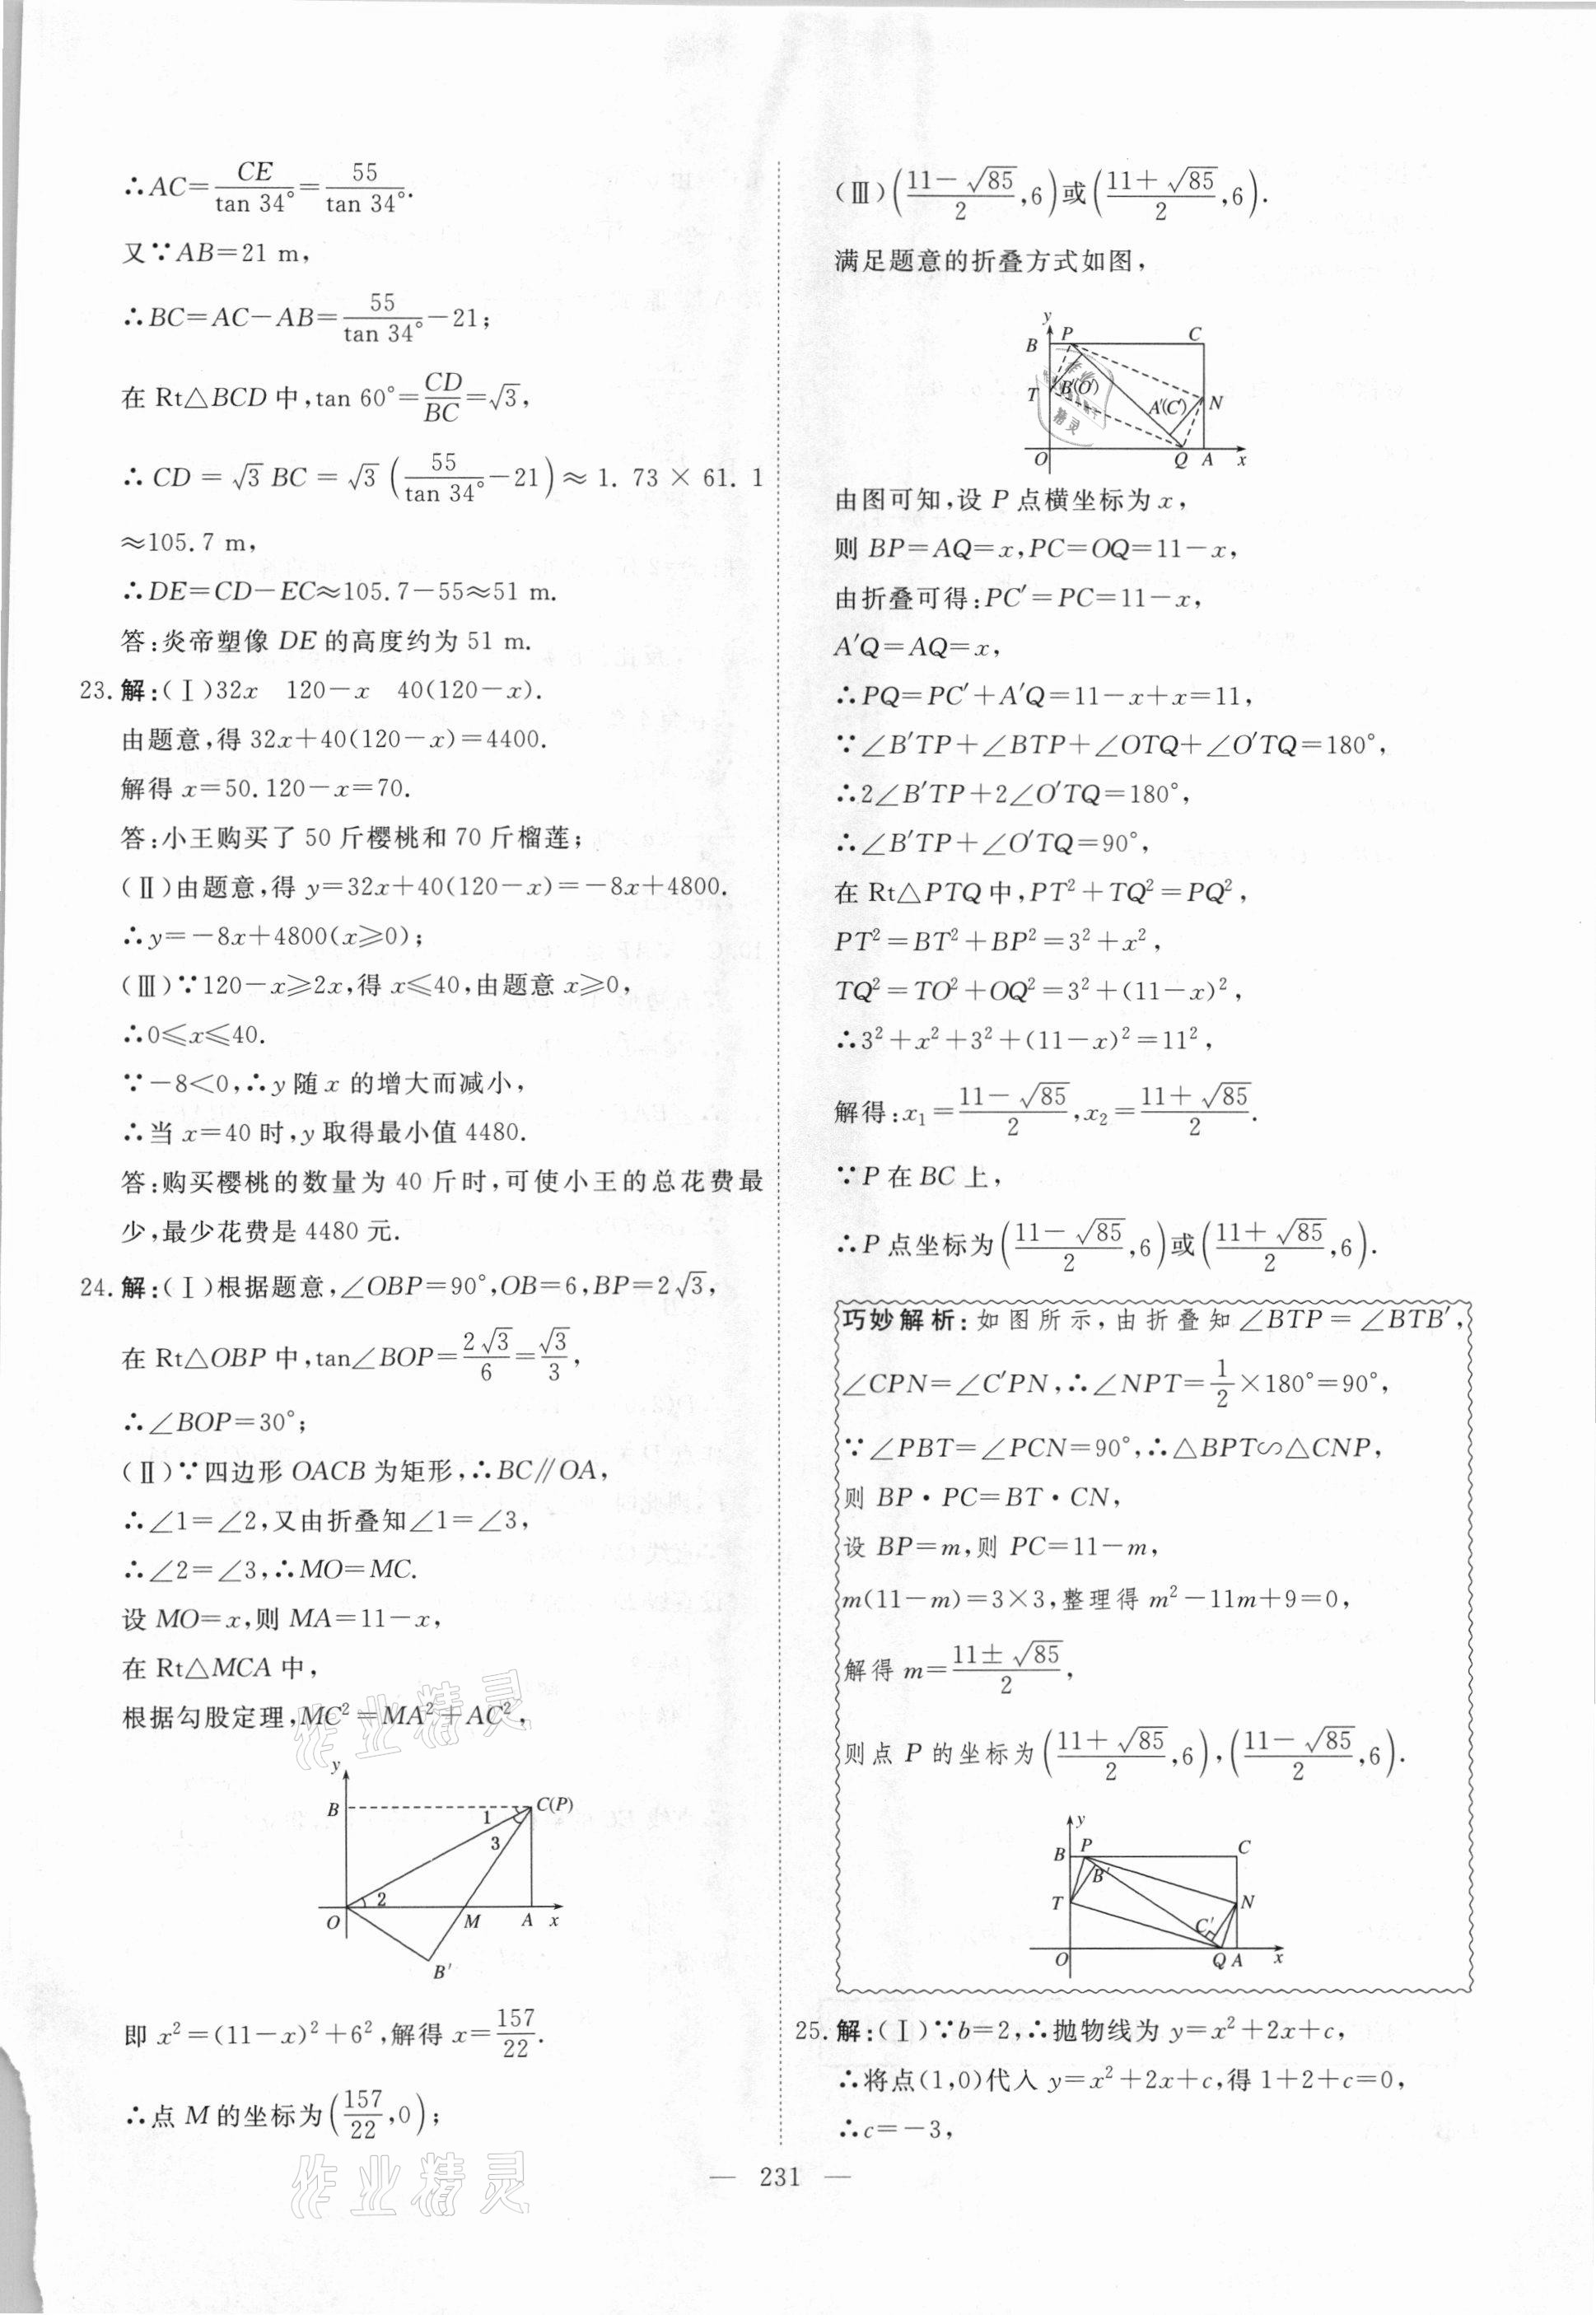 ∴AC=CE/tan 34°=55/tan 34°.
又∵AB=21 m,
∴BC=AC−AB=55/tan 34°−21;
在 Rt△BCD 中,tan 60°=CD/BC=√3,
∴CD=√3 BC=√3(55/tan 34°−21)≈1.73×61.1
≈105.7 m,
∴DE=CD−EC≈105.7−55≈51 m.
答:炎帝塑像 DE 的高度约为 51 m.
23. 解:(Ⅰ)32x 120−x 40(120−x).
由题意,得 32x+40(120−x)=4400.
解得 x=50.120−x=70.
答:小王购买了 50 斤樱桃和 70 斤榴莲;
(Ⅱ)由题意,得 y=32x+40(120−x)=−8x+4800.
∴y=−8x+4800(x≥0);
(Ⅲ)∵120−x≥2x,得 x≤40,由题意 x≥0,
∴0≤x≤40.
∵−8<0,∴y 随 x 的增大而减小,
∴当 x=40 时,y 取得最小值 4480.
答:购买樱桃的数量为 40 斤时,可使小王的总花费最
少,最少花费是 4480 元.
24. 解:(Ⅰ)根据题意,∠OBP=90°,OB=6,BP=2√3,
在 Rt△OBP 中,tan∠BOP=2√3/6=√3/3,
∴∠BOP=30°;
(Ⅱ)∵四边形 OACB 为矩形,∴BC∥OA,
∴∠1=∠2,又由折叠知∠1=∠3,
∴∠2=∠3,∴MO=MC.
设 MO=x,则 MA=11−x,
在 Rt△MCA 中,
根据勾股定理,MC²=MA²+AC²,
作业精灵
y
B 1 C(P)
3
2
O M A x
B′
即 x²=(11−x)²+6²,解得 x=157/22.
∴点 M 的坐标为(157/22,0);
作业精灵
(Ⅲ)((11−√85)/2,6)或((11+√85)/2,6).
满足题意的折叠方式如图,
y
B P C
T B′(O′) A′(C′) N
精灵
O Q A x
由图可知,设 P 点横坐标为 x,
则 BP=AQ=x,PC=OQ=11−x,
由折叠可得:PC′=PC=11−x,
A′Q=AQ=x,
∴PQ=PC′+A′Q=11−x+x=11,
∵∠B′TP+∠BTP+∠OTQ+∠O′TQ=180°,
∴2∠B′TP+2∠O′TQ=180°,
∴∠B′TP+∠O′TQ=90°,
在 Rt△PTQ 中,PT²+TQ²=PQ²,
PT²=BT²+BP²=3²+x²,
TQ²=TO²+OQ²=3²+(11−x)²,
∴3²+x²+3²+(11−x)²=11²,
解得:x₁=(11−√85)/2,x₂=(11+√85)/2.
∵P 在 BC 上,
∴P 点坐标为((11−√85)/2,6)或((11+√85)/2,6).
巧妙解析:如图所示,由折叠知∠BTP=∠BTB′,
∠CPN=∠C′PN,∴∠NPT=1/2×180°=90°,
∵∠PBT=∠PCN=90°,∴△BPT∽△CNP,
则 BP·PC=BT·CN,
设 BP=m,则 PC=11−m,
m(11−m)=3×3,整理得 m²−11m+9=0,
解得 m=(11±√85)/2,
则点 P 的坐标为((11+√85)/2,6),((11−√85)/2,6).
y
B P C
B′
T N
C′
O Q A x
25. 解:(Ⅰ)∵b=2,∴抛物线为 y=x²+2x+c,
∴将点(1,0)代入 y=x²+2x+c,得 1+2+c=0,
∴c=−3,
— 231 —